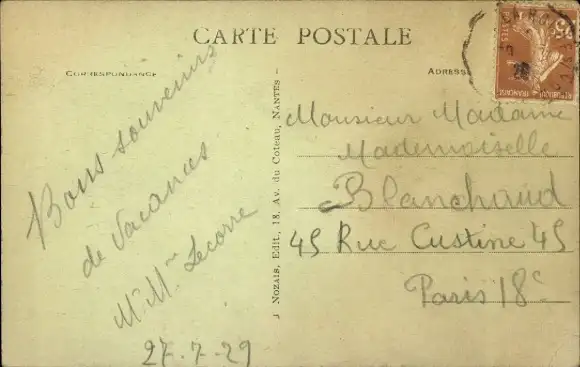 CARTE POSTALE
CORRESPONDANCE
ADRESSE
Bons souvenirs
de Vacances
Mr Mme Lecorre
27-7-29
J Nozais, Edit, 18, Av. du Coteau, Nantes
Monsieur Madame
Mademoiselle
Blanchaud
45 Rue Custine 45
Paris 18e
REPUBLIQUE FRANCAISE